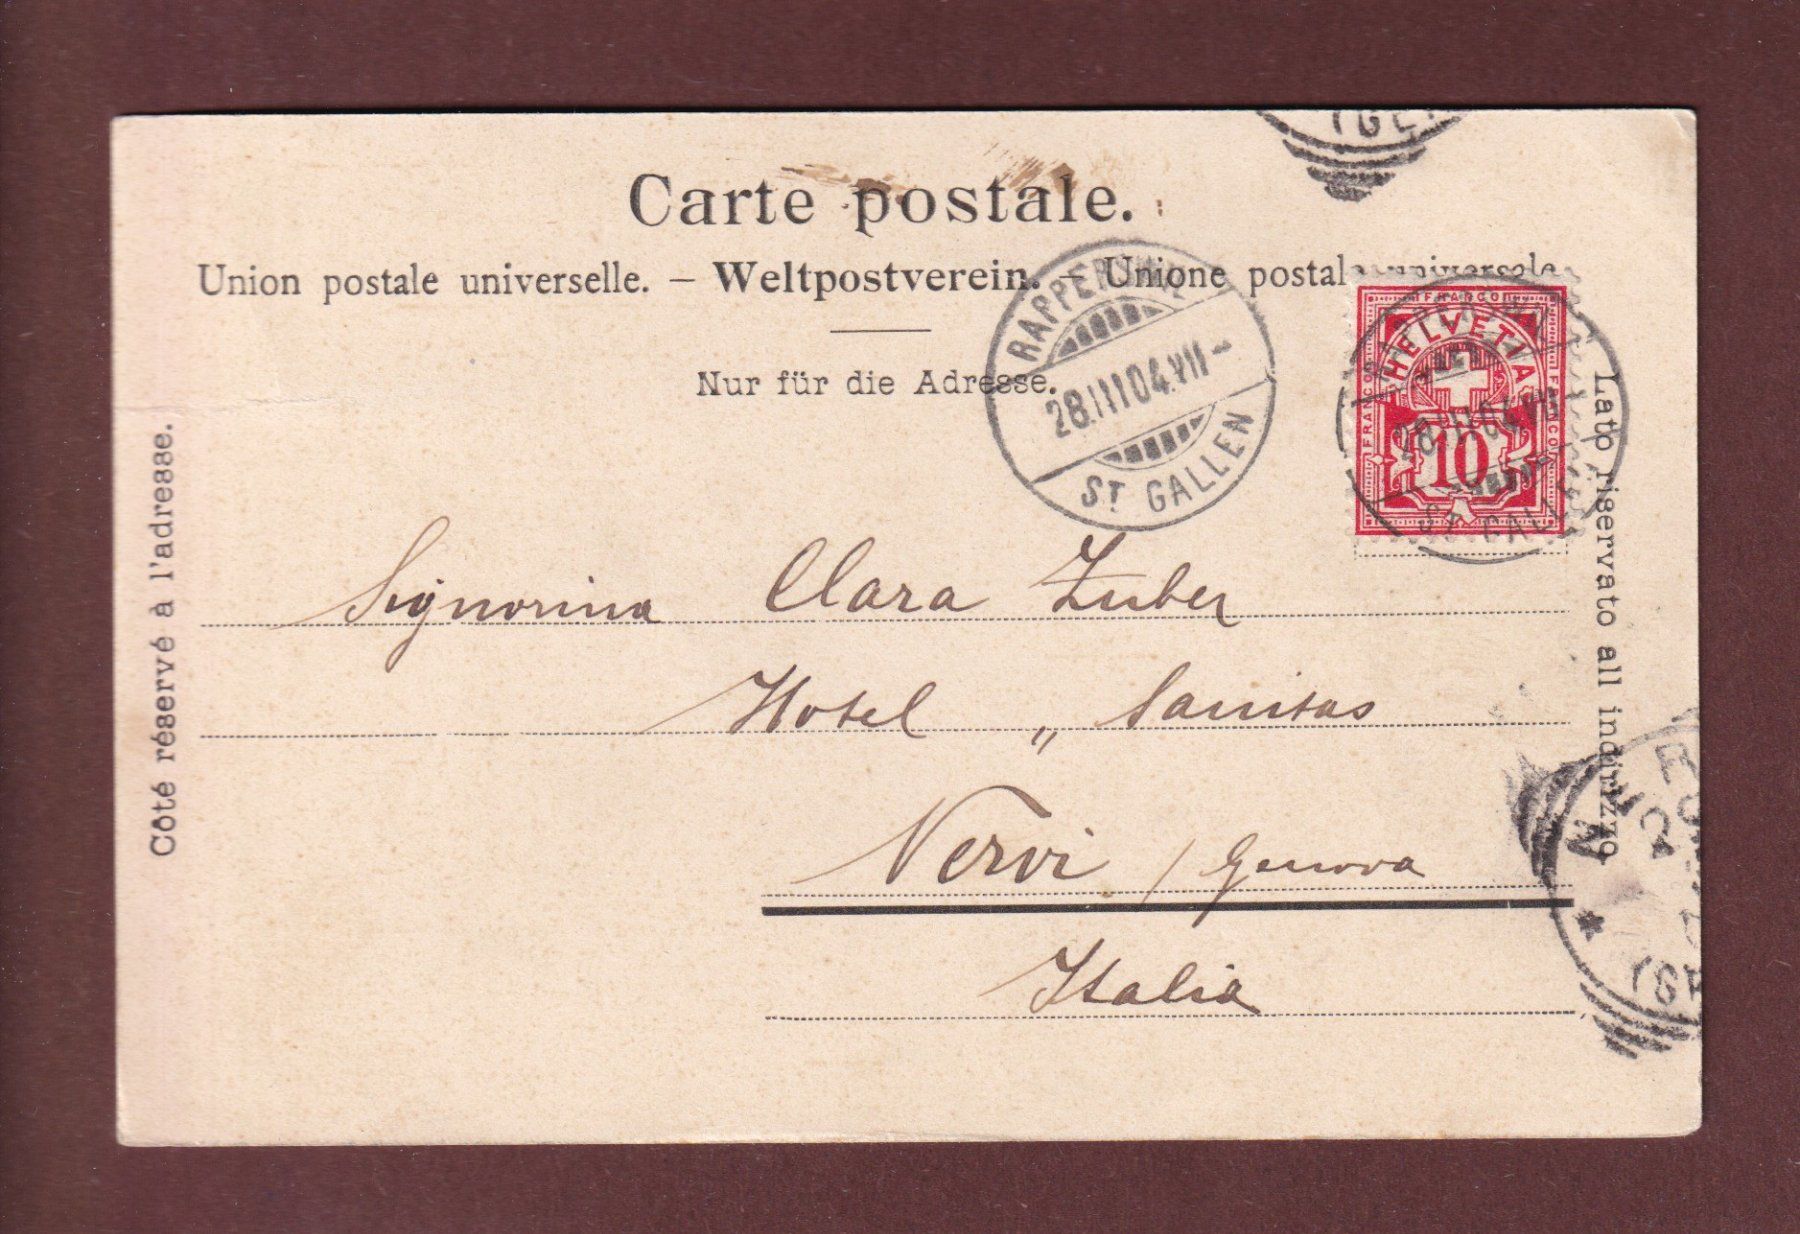 Carte postale.
Union postale universelle. – Weltpostverein. – Unione postale universale
Nur für die Adresse.
Côté réservé à l'adresse.
Lato riservato all indirizzo
RAPPERSWIL
28.III.04.VII-
ST GALLEN
FRANCO
HELVETIA
FRANCO
FRANCO
10
28.III.04.VII
ST GALLEN
Signorina Clara Zuber
Hotel „ Sanitas
Nervi / Genova
Italia